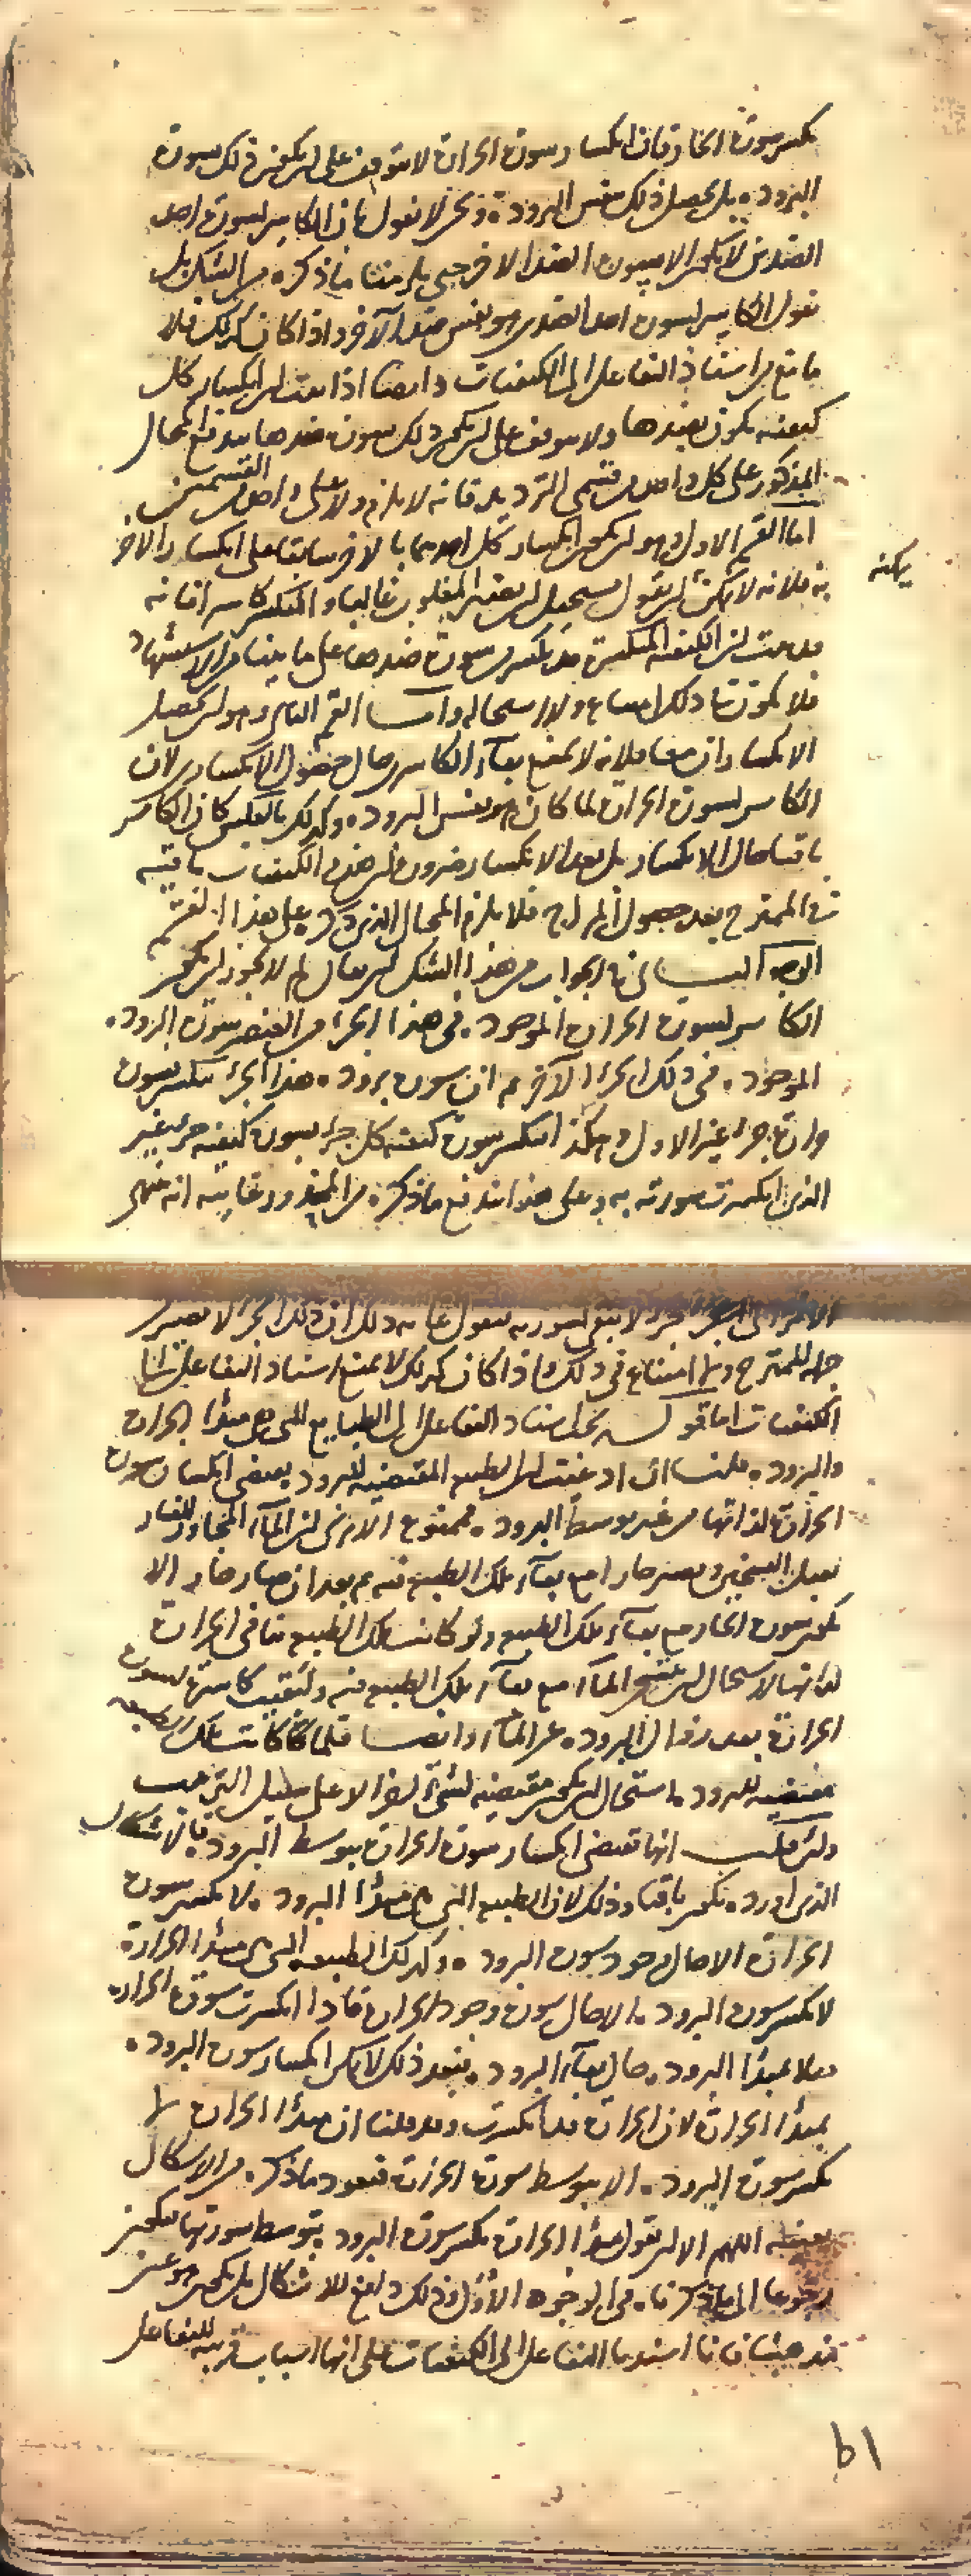 تكسر سورة الحار فان انكسار سورة الحرارة لا يتوقف على ان يكون ذلك بسورة
البرودة بل يحصل ذلك بنفس البرودة ونحن لا نقول بان الكاسر لسورة احد
الضدين لا يكون الا سورة الضد الاخر حتى يلزمنا ما ذكره من الشك بل
نقول الكاسر لسورة احد الضدين هو نفس الضد الآخر واذا كان كذلك فلا
مانع من استناد التفاعل الى الكيفيات وايضا اذا ثبت ان انكسار كل
كيفية يكون بضدها ولا يتوقف على ان يكون ذلك بسورة ضدها يندفع المحال
المذكور على كل واحد من قسمي الترديد فانه لا يلزم ولا على واحد من القسمين
اما القسم الاول وهو ان يكون انكسار كل احدهما بالاخر سابقا على انكسار الاخر
به فلانه لا يمكن ان يقول يستحيل ان يصير المغلوب غالبا والمنكسر كاسرا فانه
يمكنه
قد ثبت ان الكيفية المنكسرة قد تكسر سورة ضدها على ما بينا من الاستشهاد
فلا يكون في ذلك امتناع ولا استحالة واما القسم الثاني وهو ان يحصل
الانكساران معا فلانه لا يمتنع بقاء الكاسر حال حصول الانكسار لان
الكاسر لسورة الحرارة لما كان هو نفس البرودة وكذلك بالعكس كان الكاسر
باقيا حال الانكسار بل بعد الانكسار ضرورة ان هذه الكيفيات باقية
في الممتزج بعد حصول المزاج فلا يلزم المحال الذي ذكره على هذا القسم
الوجه الثاني في الجواب عن هذا الشك ان يقال لم لا يجوز ان يكون
الكاسر لسورة الحرارة الموجودة في هذا الجزء من العنصر سورة البرودة
الموجودة في ذلك الجزء الآخر ثم ان سورة برودة هذا الجزء تنكسر بسورة
حرارة جزء غير الاول وهكذا تنكسر سورة كيفية كل جزء بسورة كيفية جزء غير
الذي انكسرت سورته به وعلى هذا يندفع ما ذكره من المحذور وغايته انه ينتهي
الامر الى جزء لا يبقى لسورته فنقول غاية ذلك ان ذلك الجزء لا يصير
جزءا للممتزج ولا امتناع في ذلك واذا كان كذلك لا يمتنع استناد التفاعل الى
الكيفيات اما قوله نحن اسناد التفاعل الى الطبايع التي هي مبدأ الحرارة
والبرودة قلنا ان ادعيت ان الطبيعة المقتضية للبرودة يقتضي انكسار سورة
الحرارة لذاتها من غير توسط البرودة فممنوع الا ترى ان الماء المجاور للنار
يقبل التسخين ويصير حارا مع بقاء تلك الطبيعة فيه ثم بعد ان صار حارا لا
تكسر سورة الحار مع بقاء تلك الطبيعة ولو كانت تلك الطبيعة تنافي الحرارة
لذاتها لاستحال ان يتسخن الماء مع بقاء تلك الطبيعة فيه ولبقيت كاسرة لسورة
الحرارة بعد زوال البرودة عن الماء وايضا فلما كانت تلك الطبيعة
مقتضية للبرودة استحال ان يكون مقتضية لشيء آخر الا على سبيل الترتيب
ولئن قلت انها تقتضي انكسار سورة الحرارة بتوسط البرودة فالاشكال
الذي اورده يكون باقيا وذلك لان الطبيعة التي هي مبدأ البرودة لا تكسر سورة
الحرارة الا حال وجود سورة البرودة وكذلك الطبيعة التي هي مبدأ الحرارة
لا تكسر سورة البرودة الا حال سورة وجود الحرارة فاذا انكسرت سورة الحرارة
مثلا بمبدأ البرودة حال بقاء البرودة فبعد ذلك لا يمكن انكسار سورة البرودة
بمبدأ الحرارة لان الحرارة قد انكسرت وقد قلنا ان مبدأ الحرارة لا
تكسر سورة البرودة الا بتوسط سورة الحرارة فيعود ما ذكره من الاشكال
بعينه اللهم الا ان يقول مبدأ الحرارة تكسر سورة البرودة بتوسط سورتها فيكون
رجوعا الى ما ذكرنا في الوجوه الاول وذلك دفع للاشكال بل يكون هو عين
مذهبنا فانا اسندنا التفاعل الى الكيفيات على انها اسباب قريبة للتفاعل
١٥